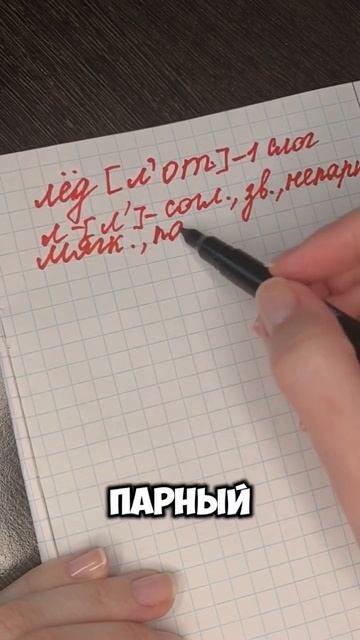 лёд [л'от]-1 слог
л-[л']-согл., зв., непарн
мягк., па
ПАРНЫЙ